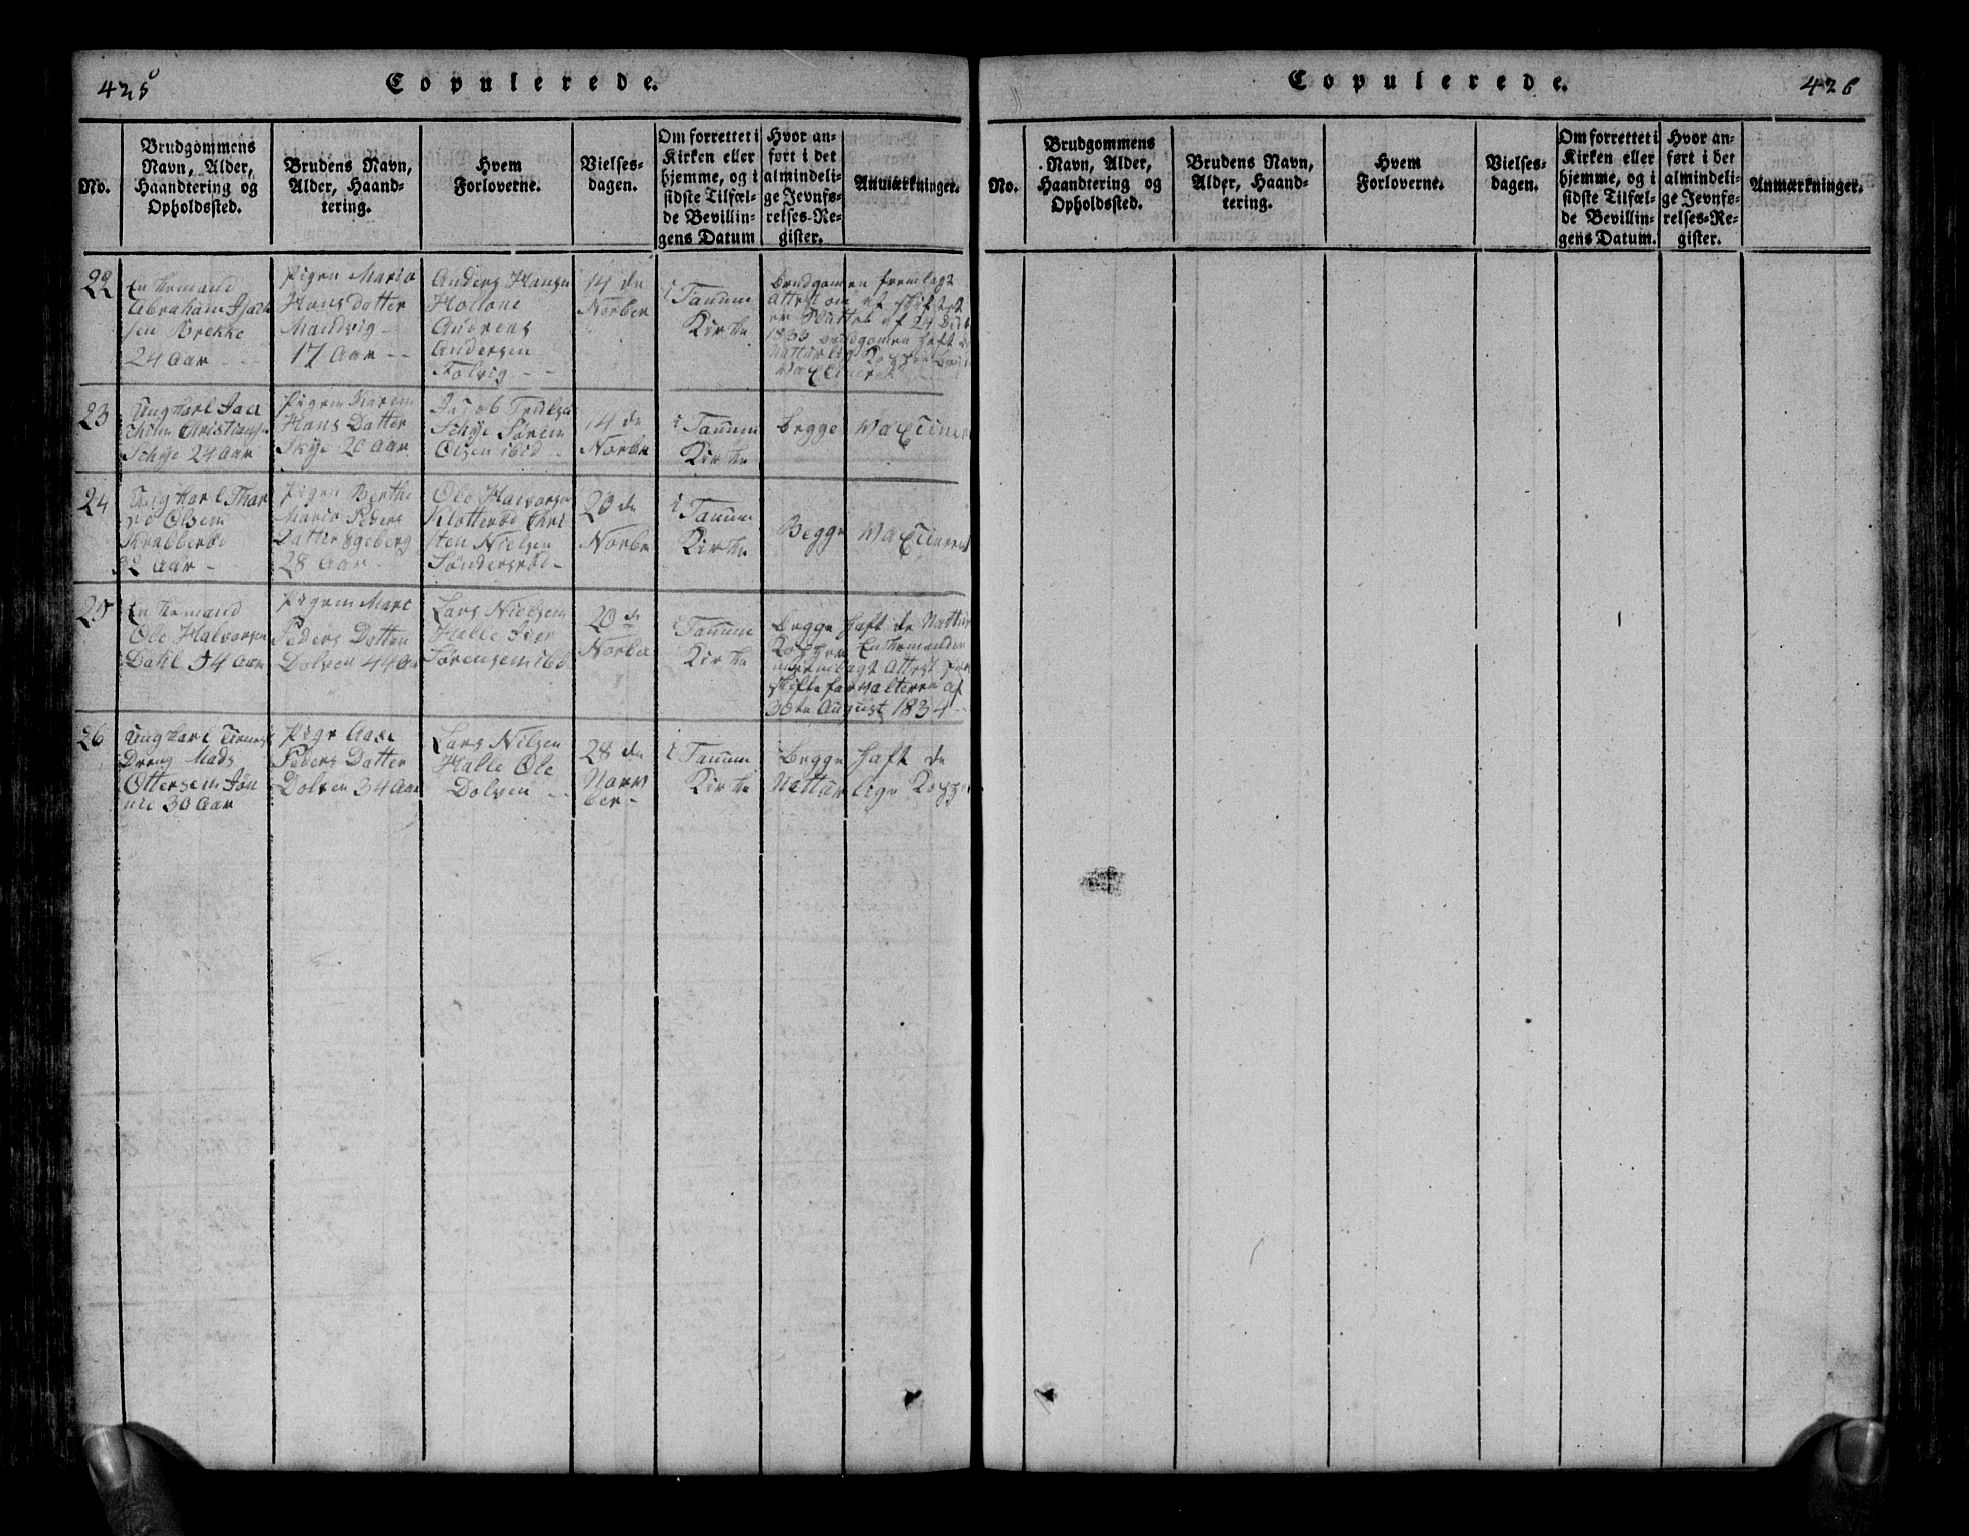 425
Copulerede.
No.
Brudgommens
Navn, Alder,
Haandtering og
Opholdssted.
Brudens Navn,
Alder, Haand-
tering.
Hvem
Forloverne.
Vielses-
dagen.
Om forrettet i
Kirken eller
hjemme, og i
sidste Tilfæl-
de Bevillin-
gens Datum
Hvor an-
ført i det
almindeli-
ge Jevnfø-
relses-Re-
gister.
Anmærkninger.
22
Enkemand
Abraham
Brekke
24 Aar
Pigen Maria
Hans Datter
Mandvig
17 Aar
Anders Hansen
Andreas
Andersen
Folvig
14 de
Norber
i Tanum
Kirke
Brudgomen fremlagt
Attest om at skiftet
er sluttet af 24
1833 Brudgomen haft de
Natturlig Kopper
Vaccineret
23
Ungkarl
Christiansen
Schye 24 Aar
Pigen Karen
Hans Datter
Skye 20 Aar
Jacob
Schye Søren
Olsen ibid
14 de
Norbr
i Tanum
Kirke
Begge Vaccineret
24
Ungkarl Thor
Olsen
32 Aar
Pigen Berthe
Maria Peders
Datter Egeberg
28 Aar
Ole Halvorsen
Klotterød
sten Nielsen
Søndersrød
20 de
Norbr
i Tanum
Kirke
Begge Vaccineret
25
Enkemand
Ole Halvorsen
Dahl 54 Aar
Pigen Mari
Peders Datter
Dolven 44 Aar
Lars Nielsen
Halle Iver
Sørensen ibd
20 de
Norber
i Tanum
Kirke
Begge haft de Nattur
Kopper Enkemanden
fremlagt Attest fra
skifteforvalteren af
30te August 1834
26
Ungkarl
Dreng Mads
Ottersen
30 Aar
Pige Aase
Peders Datter
Dolven 34 Aar
Lars Nilsen
Halle Ole
Dolven
28 de
Novem
ber
i Tanum
Kirke
Begge haft de
Natturlige Kopper
426
Copulerede.
No.
Brudgommens
Navn, Alder,
Haandtering og
Opholdssted.
Brudens Navn,
Alder, Haand-
tering.
Hvem
Forloverne.
Vielses-
dagen.
Om forrettet i
Kirken eller
hjemme, og i
sidste Tilfæl-
de Bevillin-
gens Datum.
Hvor an-
ført i det
almindeli-
ge Jevnfø-
relses-Re-
gister.
Anmærkninger.